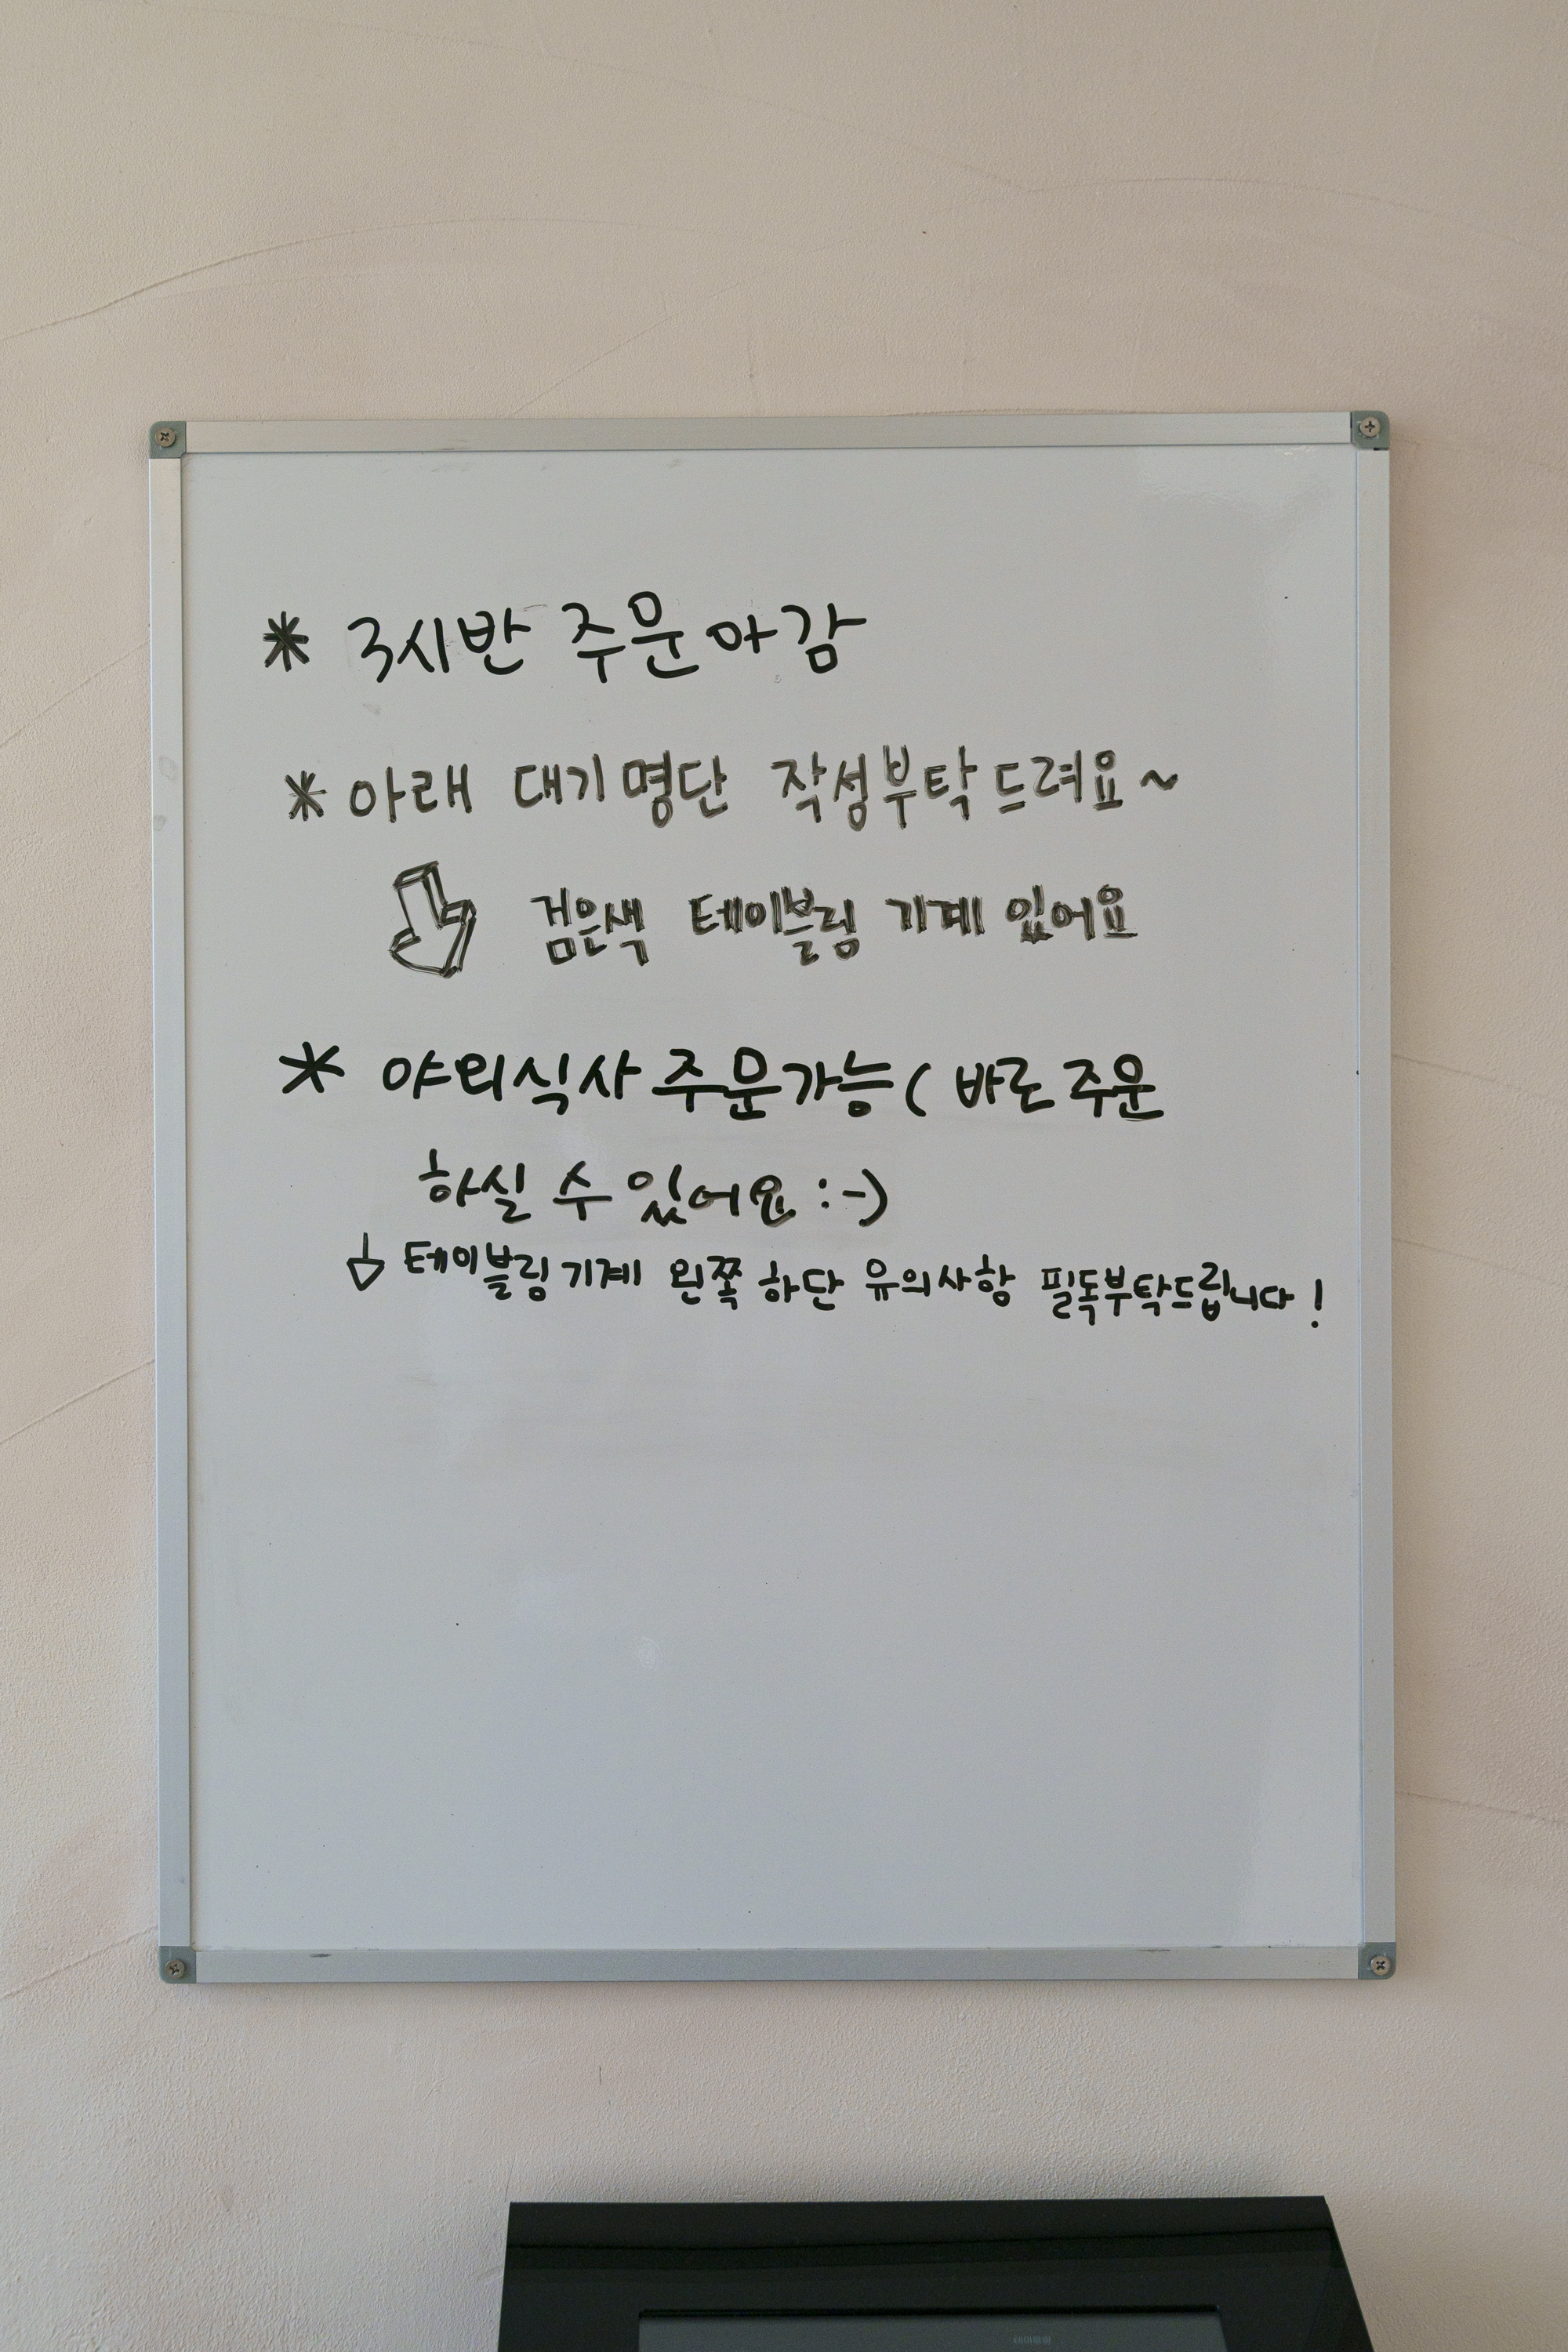 * 3시반 주문마감
* 아래 대기명단 작성부탁드려요~
검은색 테이블링 기계 있어요
* 야외식사 주문가능( 바로 주문
하실 수 있어요 :-)
↓ 테이블링기계 왼쪽 하단 유의사항 필독부탁드립니다!